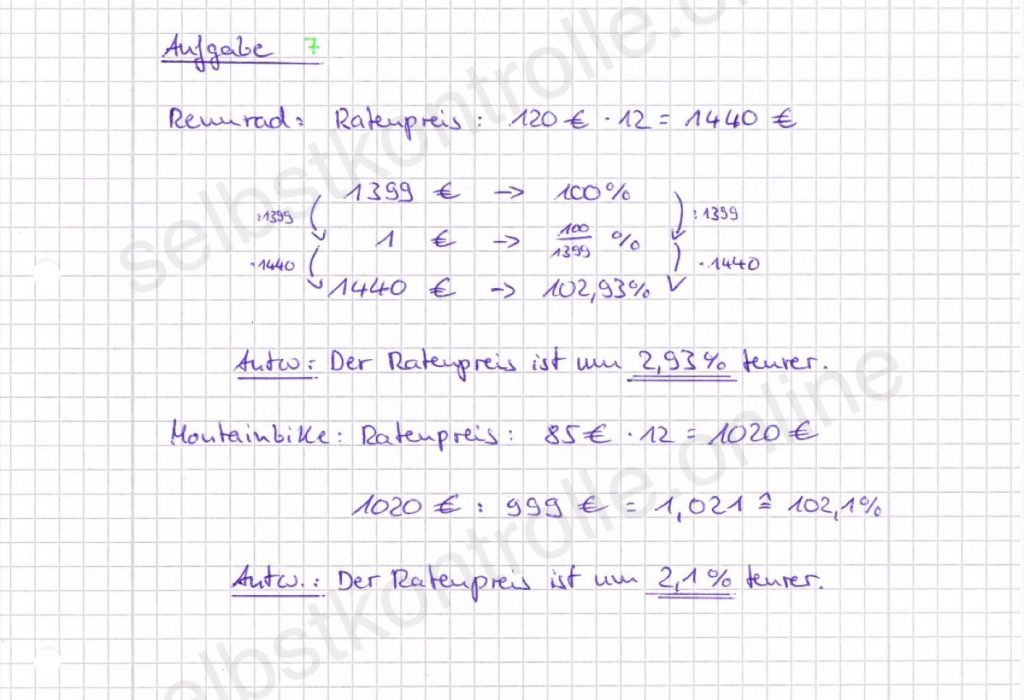 Aufgabe 7
Rennrad: Ratenpreis: 120 € · 12 = 1440 €
1399 € -> 100%
:1399 :1399
1 € -> 100/1399 %
·1440 ·1440
1440 € -> 102,93%
Antw: Der Ratenpreis ist um 2,93% teurer.
Moutainbike: Ratenpreis: 85 € · 12 = 1020 €
1020 € : 999 € = 1,021 ≙ 102,1%
Antw.: Der Ratenpreis ist um 2,1% teurer.
selbstkontrolle.online
selbstkontrolle.online